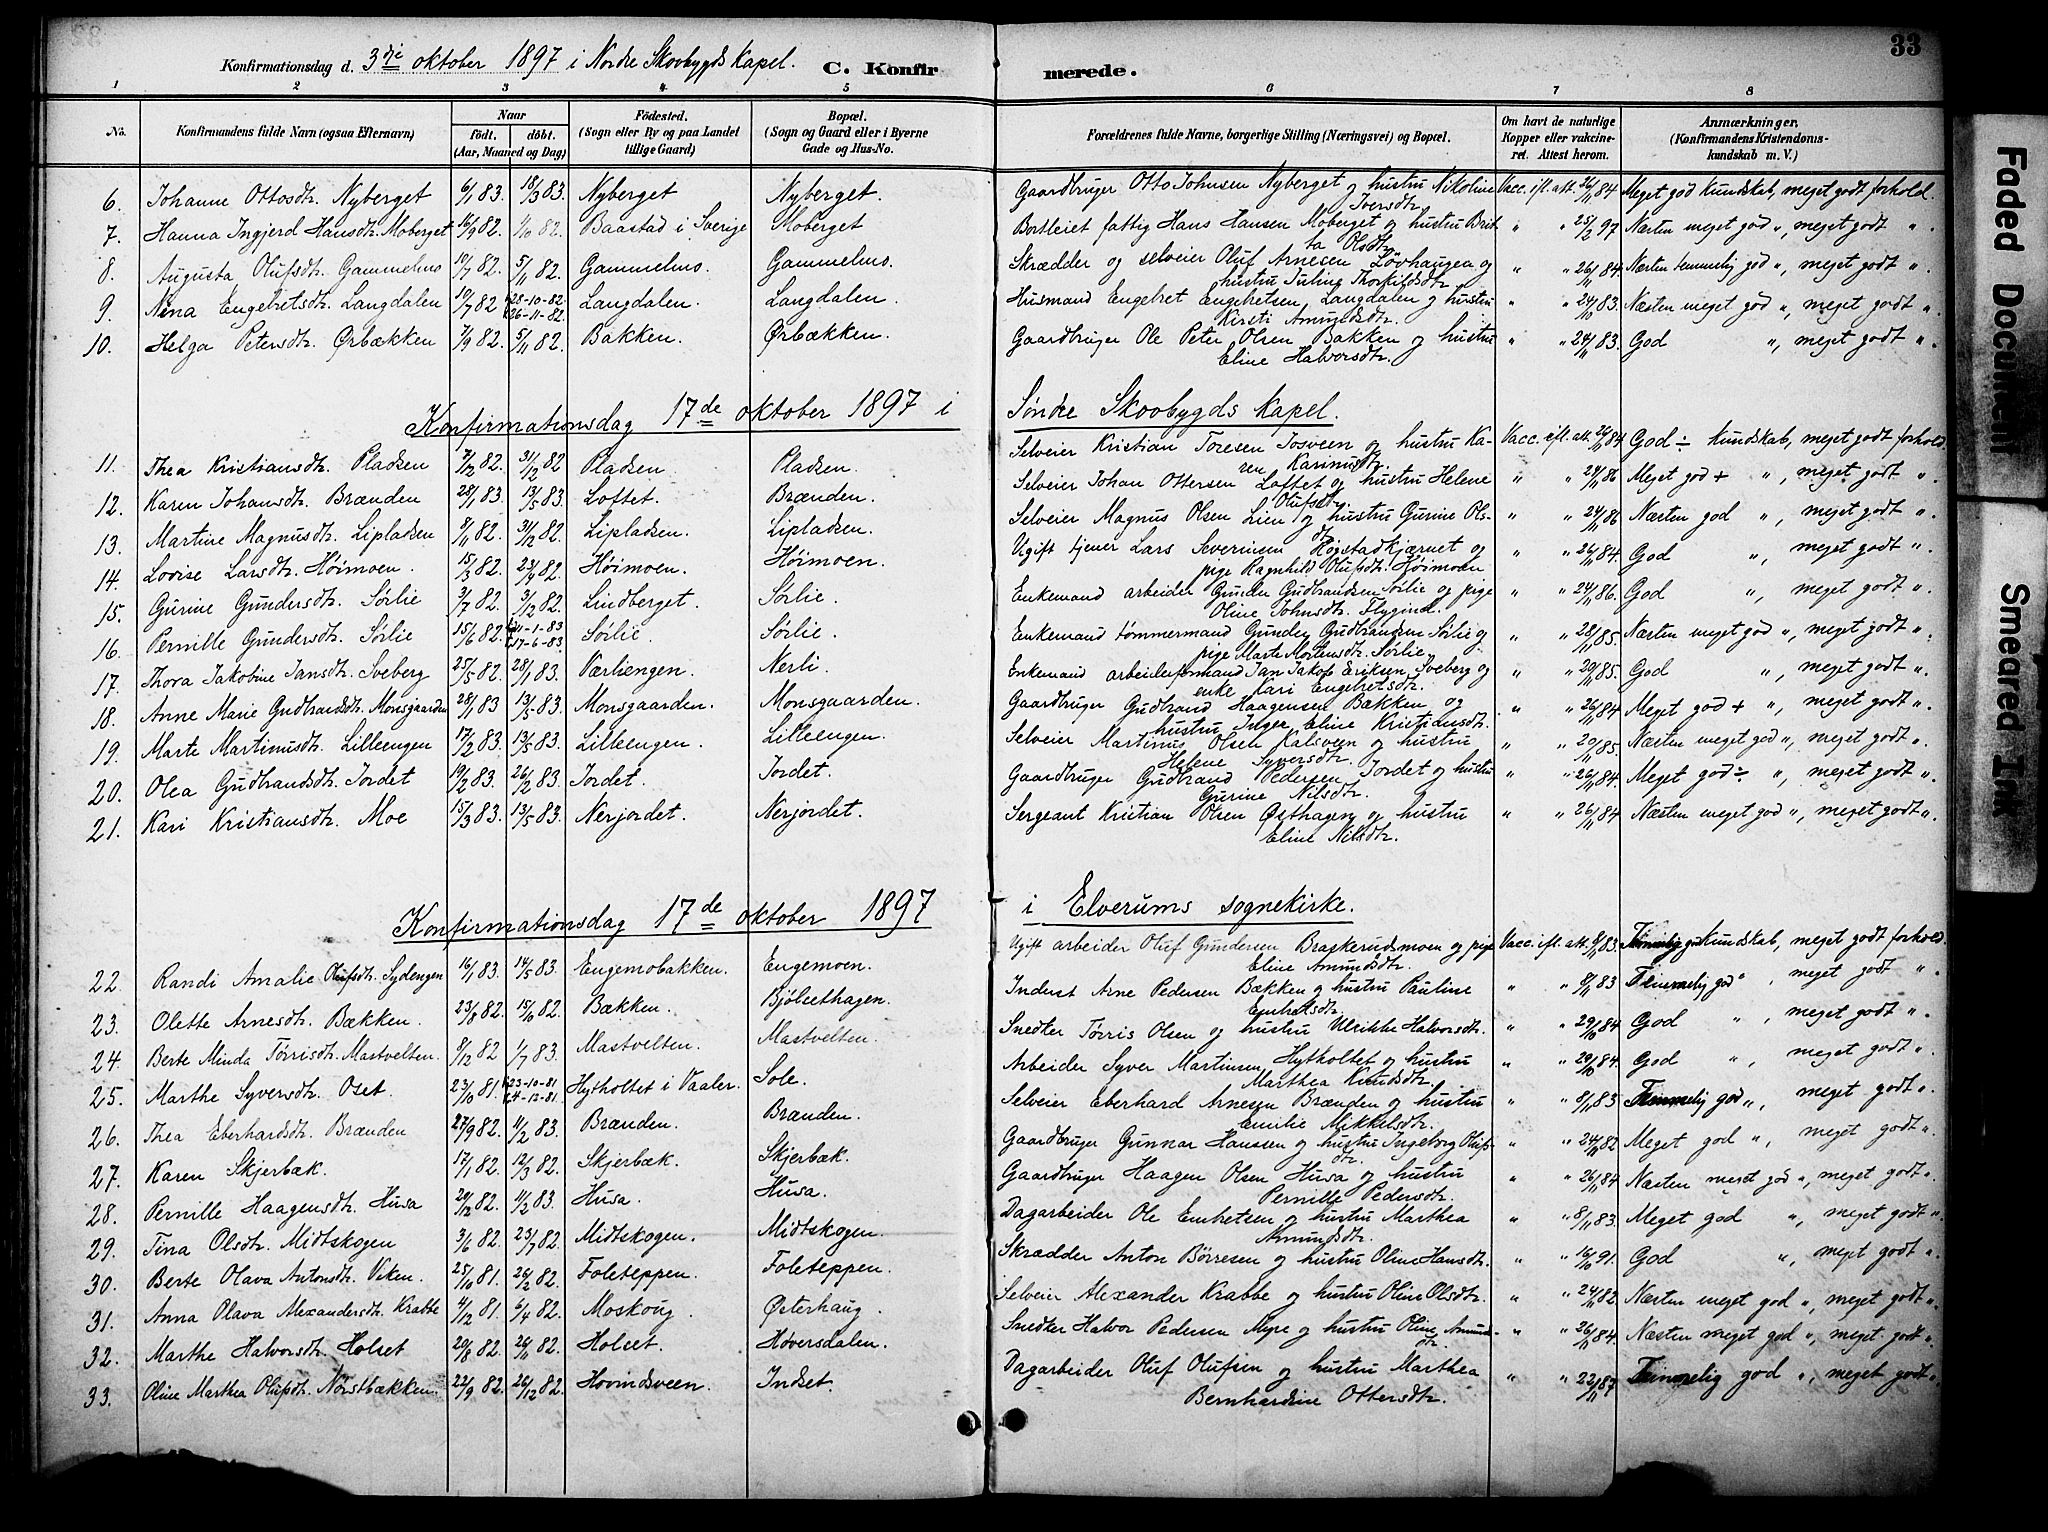 33
Konfirmationsdag d. 3die oktober 1897 i Nordre Skovbygds Kapel. C. Konfirmerede.
1 2 3 4 5 6 7 8
No. Konfirmandens fulde Navn (ogsaa Efternavn) Naar födt. döbt. (Aar, Maaned og Dag) Födested. (Sogn eller By og paa Landet tillige Gaard) Bopæl. (Sogn og Gaard eller i Byerne Gade og Hus-No. Forældrenes fulde Navne, borgerlige Stilling (Næringsvei) og Bopæl. Om havt de naturlige Kopper eller vakcineret. Attest herom. Anmærkninger. (Konfirmandens Kristendomskundskab m. V.)
6. Johanne Ottosdtr. Nyberget 6/1 83. 18/3 83. Nyberget Nyberget. Gaardbruger Otto Johnsen Nyberget og hustru Nikoline Iversdtr. Vacc. ifl. att. 26/11 84 Meget god kundskab, meget godt forhold.
7. Hanna Ingjerd Hansdtr. Moberget 16/9 82. 1/10 82. Baastad i Sverige Moberget Bortleiet fattig Hans Hansen Moberget og hustru Britta Olsdtr. " " 25/2 97 Næsten meget god ", meget godt ".
8. Augusta Olufsdtr. Gammelmo 10/7 82. 5/11 82. Gammelmo. Gammelmo. Skrædder og selveier Oluf Arnesen Løvhaugen og hustru Juline Thorkildsdtr. " " 26/11 84 Næsten temmelig god ", meget godt ".
9. Nina Engebretsdtr. Langdalen 10/7 82 28-10-82. 26-11-82. Langdalen. Langdalen. Husmand Engebret Engebretsen Langdalen og hustru Kirsti Amundsdtr. " " 24/11 83. Næsten meget god ", meget godt ".
10. Helga Petersdtr. Ørbækken 7/9 82. 5/11 82. Bakken. Ørbækken. Gaardbruger Ole Peter Olsen Bakken og hustru Eline Halvorsdtr. " " 24/11 83. God ", meget godt ".
Konfirmationsdag 17de oktober 1897 i Søndre Skovbygds Kapel.
11. Thea Kristiansdtr. Pladsen 7/12 82. 31/12 82 Pladsen Pladsen. Selveier Kristian Toresen Josveen og hustru Karen Karinusdtr. Vacc. ifl. att. 26/11 84 God ÷ kundskab, meget godt forhold.
12. Karen Johansdtr. Brænden 28/1 83. 13/5 83. Loftet. Brænden. Selveier Johan Ottersen Loftet og hustru Helene Olufsdtr. " " 24/11 86 Meget god + ", meget godt ".
13. Martine Magnusdtr. Lipladsen 9/11 82. 31/12 82. Lipladsen. Lipladsen. Selveier Magnus Olsen Lien og hustru Gurine Olsdtr. " " 24/11 86 Næsten god ", meget godt ".
14. Lovise Larsdtr. Høimoen. 15/3 82. 23/4 82. Høimoen. Høimoen. Ugift tjener Lars Severinsen Høgstadkjærnet og pige Ragnhild Olufsdtr. Høimoen " " 26/11 84. God ", meget godt ".
15. Gurine Gundersdtr. Sørlie 3/7 82. 3/12 82. Lindberget. Sørlie. Enkemand arbeider Gunder Gudbrandsen Sørlie og pige Oline Johnsdtr. Flygind. " " 24/11 86. God ", meget godt ".
16. Pernille Gundersdtr. Sørlie 15/6 82. 11-1-83 17-6-83. Sørlie. Sørlie. Enkemand tømmermand Gunder Gudbrandsen Sørlie og pige Marte Mortensdtr. Sørlie. " " 28/11 85. Næsten meget god ", meget godt ".
17. Thora Jakobine Jansdtr. Sveberg 25/5 82. 28/1 83. Værliengen. Nerli. Enkemand arbeidsformand Jan Jakob Eriksen Sveberg og enke Kari Engebretsdtr. " " 29/11 85. God ", meget godt ".
18. Anne Marie Gudbrandsdtr. Monsgaarden 28/1 83 13/5 83. Monsgaarden. Monsgaarden. Gaardbruger Gudbrand Haagensen Bækken og hustru Inger Eline Kristiansdtr. " " 26/11 84 Meget god + ", meget godt ".
19. Marte Martinusdtr. Lilleengen 17/2 83. 13/5 83. Lilleengen. Lilleengen. Selveier Martinus Olsen Kalsveen og hustru Helene Syversdtr. " " 20/11 85. Næsten meget god ", meget godt ".
20. Olea Gudbrandsdtr. Jordet 19/2 83. 26/2 83. Jordet. Jordet. Gaardbruger Gudbrand Pedersen Jordet og hustru Gurine Nilsdtr. " " 26/11 84. Meget god ÷ ", meget godt ".
21. Kari Kristiansdtr. Moe 15/3 83. 13/5 83. Nerjordet. Nerjordet. Sergeant Kristian Olsen Østhagen og hustru Eline Nilsdtr. " " 26/11 84 Næsten meget god ", meget godt ".
Konfirmationsdag 17de oktober 1897 i Elverums sognekirke.
22. Randi Amalie Olufsdtr. Sydengen 16/1 83. 14/5 83. Engemobakken. Engemoen. Ugift arbeider Oluf Gundersen Braskerudsmoen og pige Eline Amundsdtr. Vacc. ifl. att. 8/11 83. Temmelig god kundskab, meget godt forhold.
23. Olette Arnesdtr. Bækken. 23/8 82. 15/10 82. Bækken. Bjølsethagen. Inderst Arne Pedersen Bækken og hustru Pauline Embretsdtr. " " 8/11 83 Temmelig god ", meget godt ".
24. Berte Minda Tørrisdtr. Mastvelten. 8/12 82 1/7 83. Mastvelten. Mastvelten. Snedker Tørris Olsen og hustru Ulrikke Halvorsdtr. " " 29/10 84 God ", meget godt ".
25. Marthe Syversdtr. Oset 23/10 81. 23-10-81 4-12-81. Hytholtet i Vaaler. Sole. Arbeider Syver Martinsen Hytholtet og hustru Marthea Knudsdtr. " " 29/10 84. God ", meget godt ".
26. Thea Eberhardsdtr. Brænden 27/9 82. 11/2 83. Brænden. Brænden. Selveier Eberhard Arnesen Brænden og hustru Emilie Mikkelsdtr. " " 8/11 83 Temmelig god ", meget godt ".
27. Karen Skjerbæk. 17/1 82. 12/3 82. Skjerbæk. Skjerbæk. Gaardbruger Gunnar Hanssen og hustru Ingeborg Olufsdtr. " " 24/11 82 Meget god ", meget godt ".
28. Pernille Haagensdtr. Husa 24/12 82. 11/2 83. Husa Husa. Gaardbruger Haagen Olsen Husa og hustru Pernille Pedersdtr. " " 26/11 84 Næsten meget god ", meget godt ".
29. Tina Olsdtr. Midtskogen 3/6 82. 23/7 82. Midtskogen. Midtskogen. Dagarbeider Ole Embretsen og hustru Marthea Amundsdtr. " " 8/11 83. Meget god ", meget godt ".
30. Berte Olava Antonsdtr. Viken. 25/10 81. 26/2 82. Foleteppen. Foleteppen. Skrædder Anton Børresen og hustru Oline Hansdtr. " " 16/10 91. God ", meget godt ".
31. Anna Olava Alexandersdtr. Krabbe 4/12 81. 6/4 82. Moskoug. Østerhaug. Selveier Alexander Krabbe og hustru Oline Olsdtr. " " 24/11 82. Næsten meget god ", meget godt ".
32. Marthe Halvorsdtr. Holset 20/8 82. 26/11 82. Holset. Høversdalen. Snedker Halvor Pedersen Myre og hustru Oline Amundsdtr. " " 26/11 84. Næsten meget god ", meget godt ".
33. Oline Marthea Olufsdtr. Nørstbækken. 22/9 82. 26/12 82. Hovindsveen. Indset. Dagarbeider Oluf Olufsen og hustru Marthea Bernhardine Ottersdtr. " " 22/11 87 Temmelig god ", meget godt ".
Faded Document
Smeared Ink